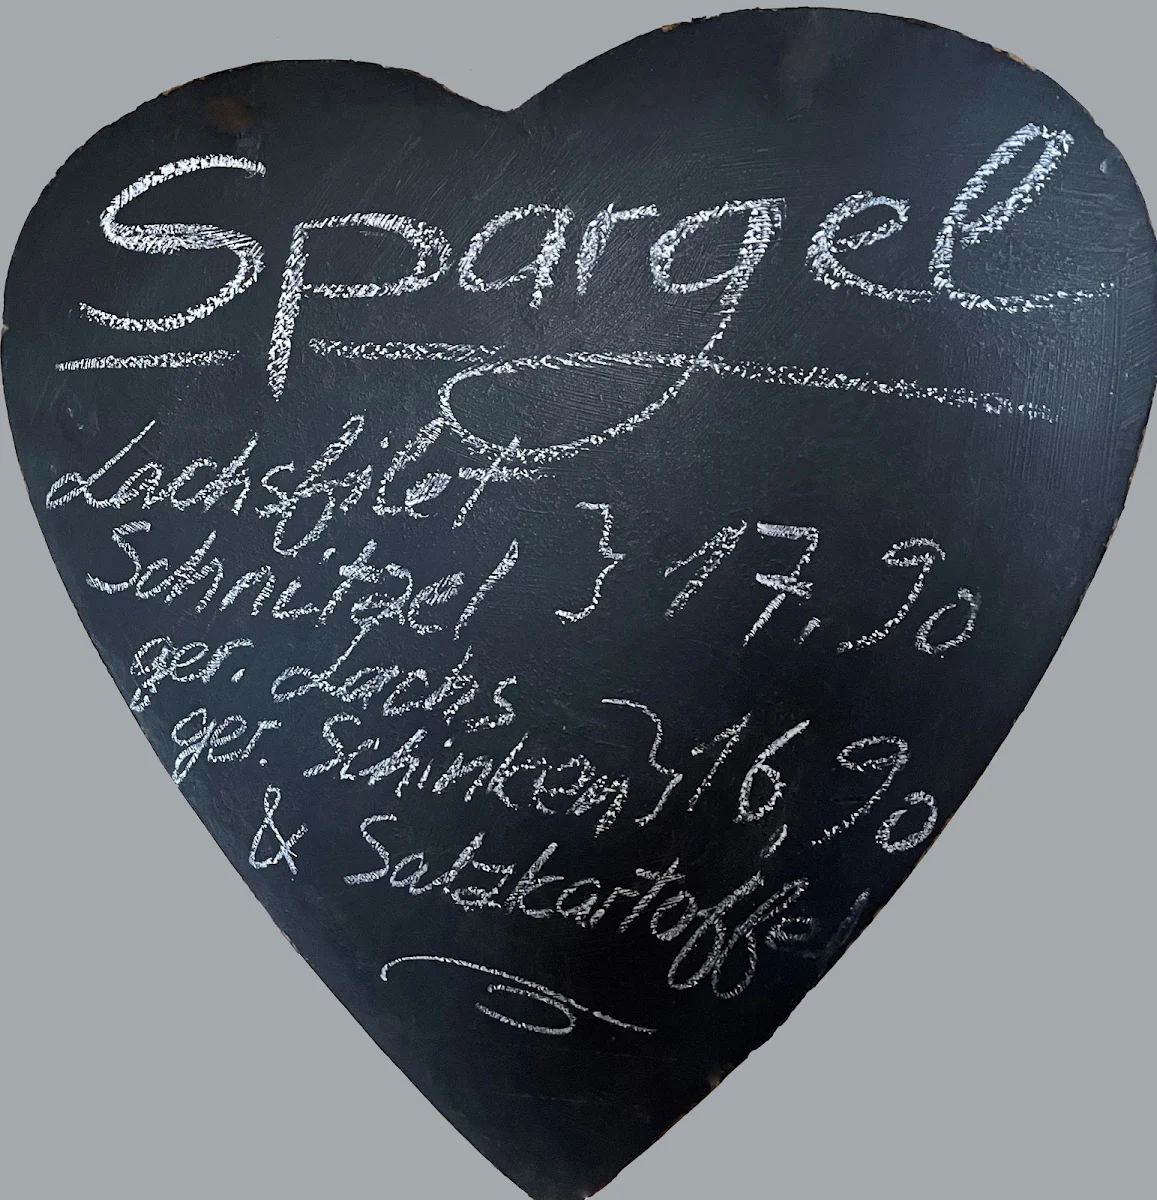 Spargel
Lachsfilet
Schnitzel } 17,90
ger. Lachs
ger. Schinken } 16,90
& Salzkartoffel